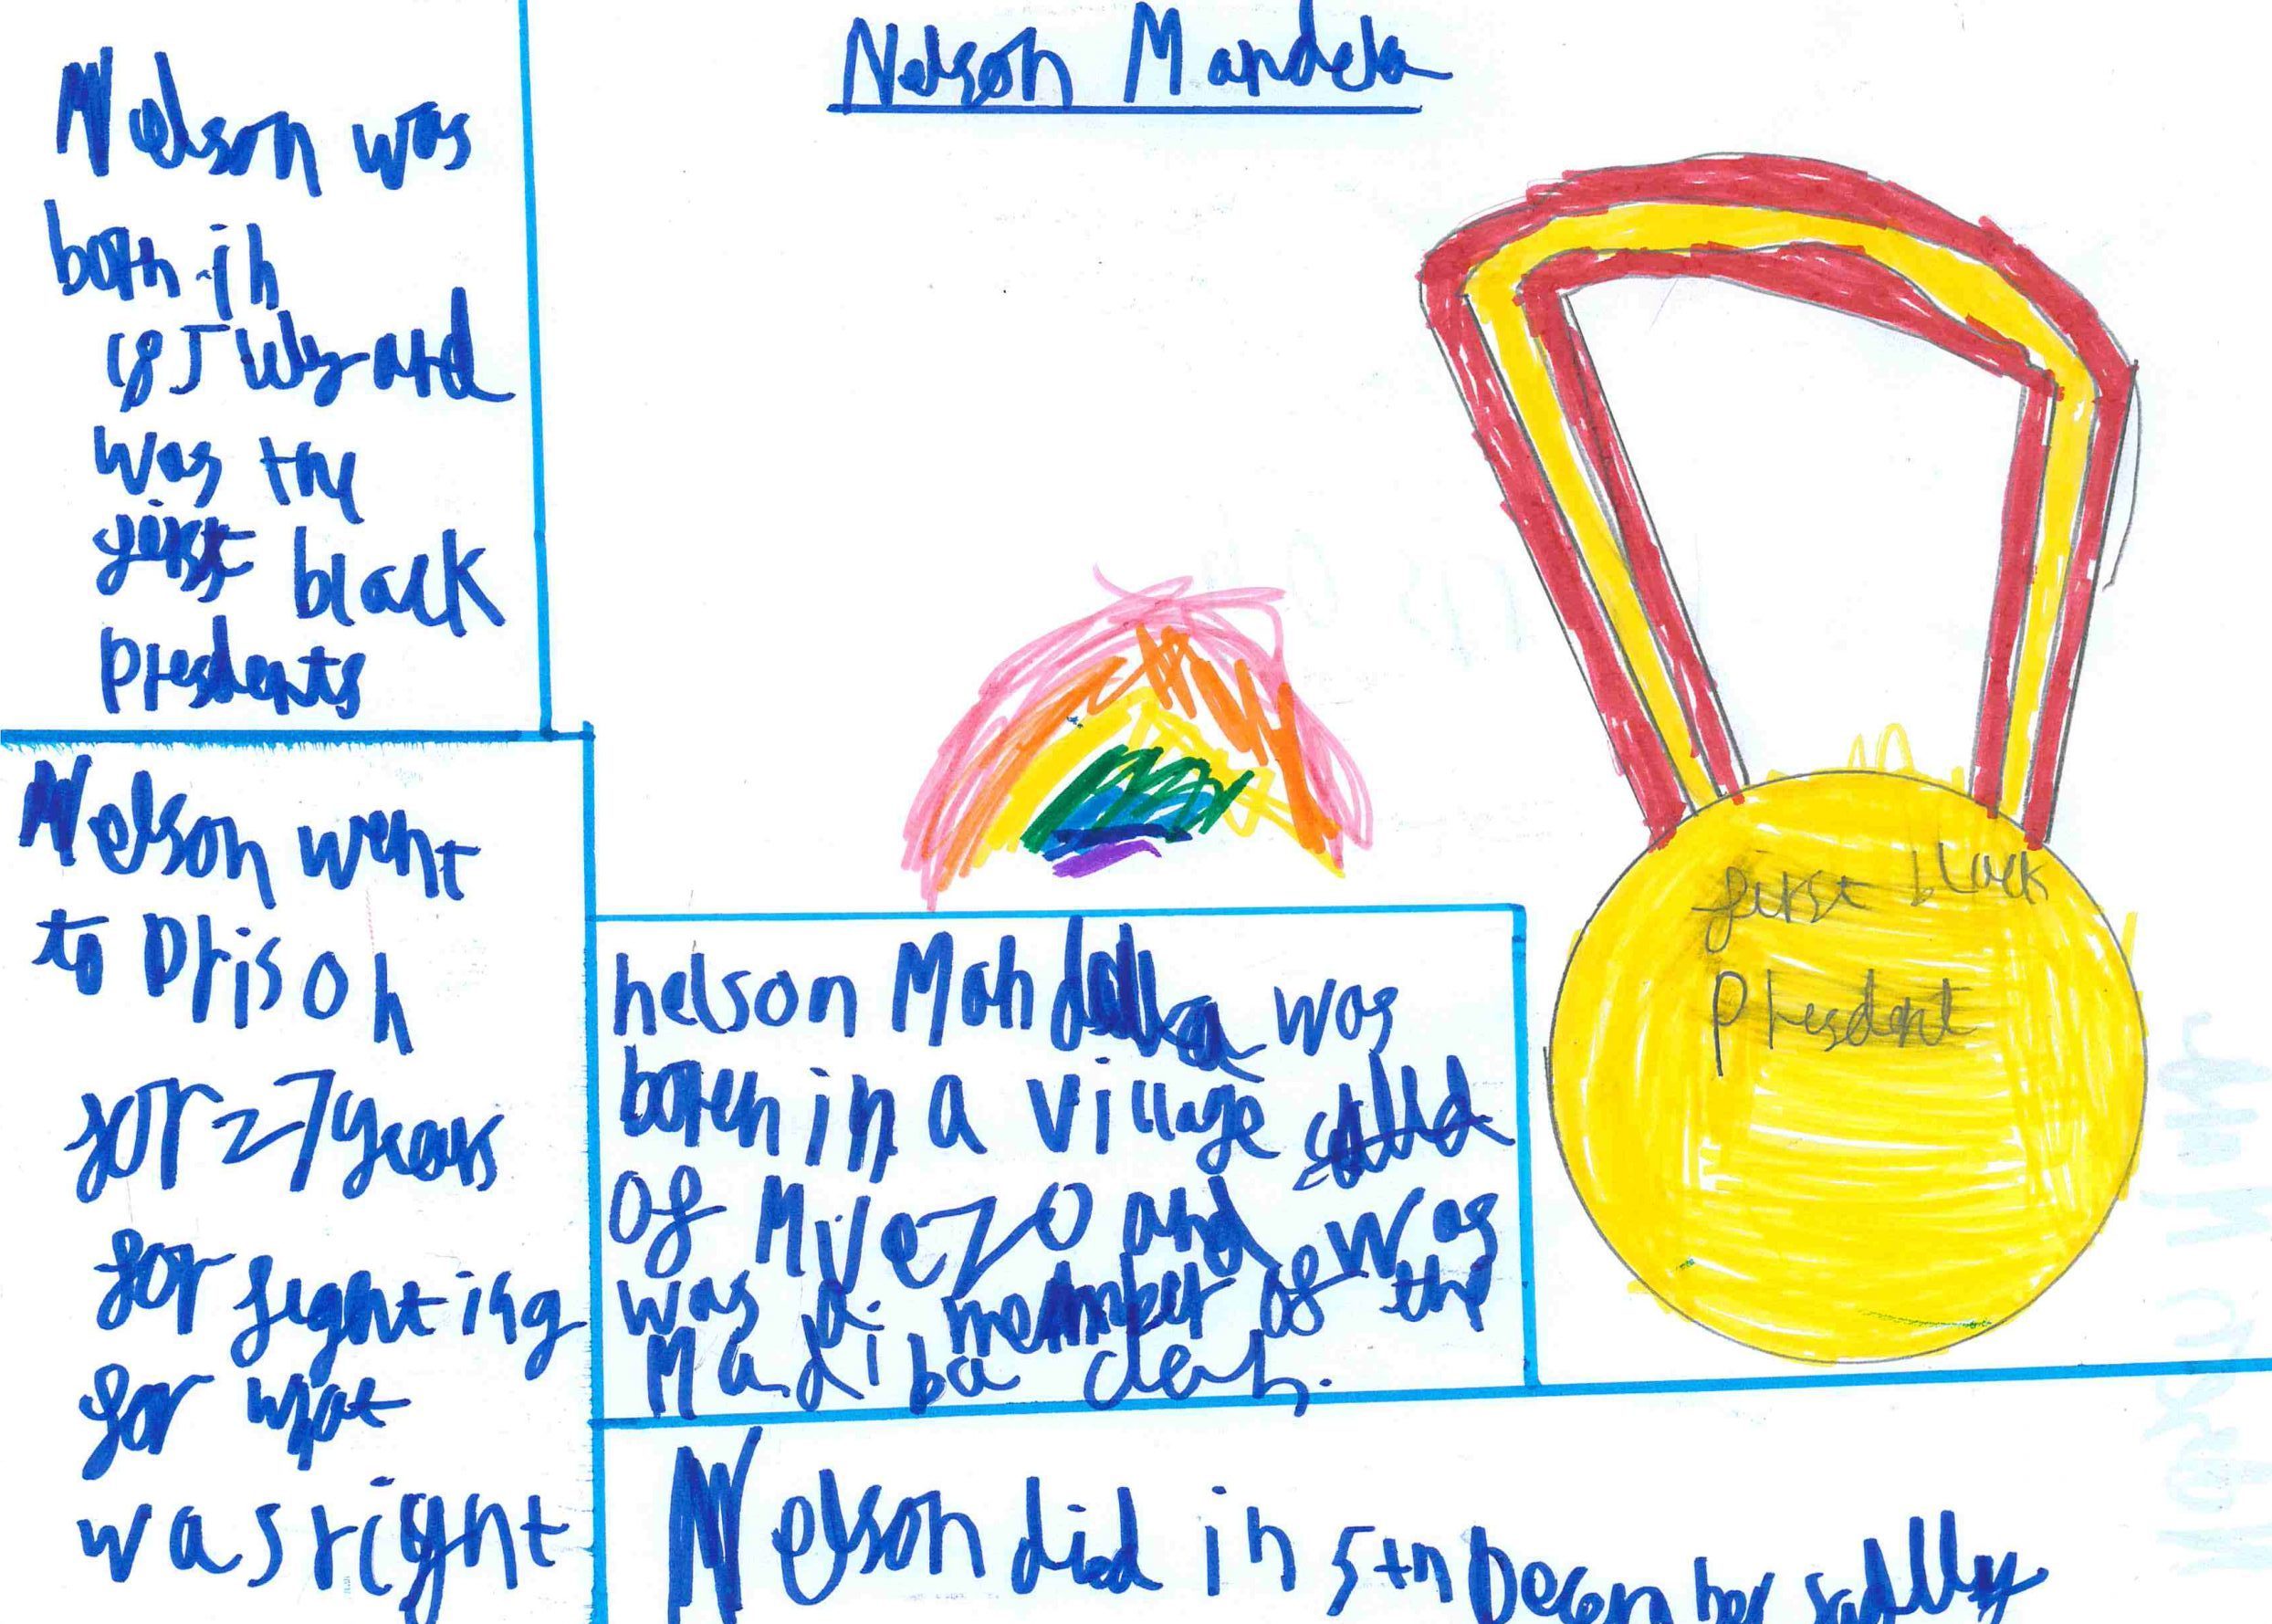 Nelson Mandela
Nelson was
born in
18 July and
was the
first black
Presdents
Nelson went
to Prison
for 27 years
for fighting
for what
was right
nelson Mandella was
boren in a village called
of Mvezo and was
was a member of the
Madiba clan.
first black
Presdent
Nelson did in 5th December sadlly